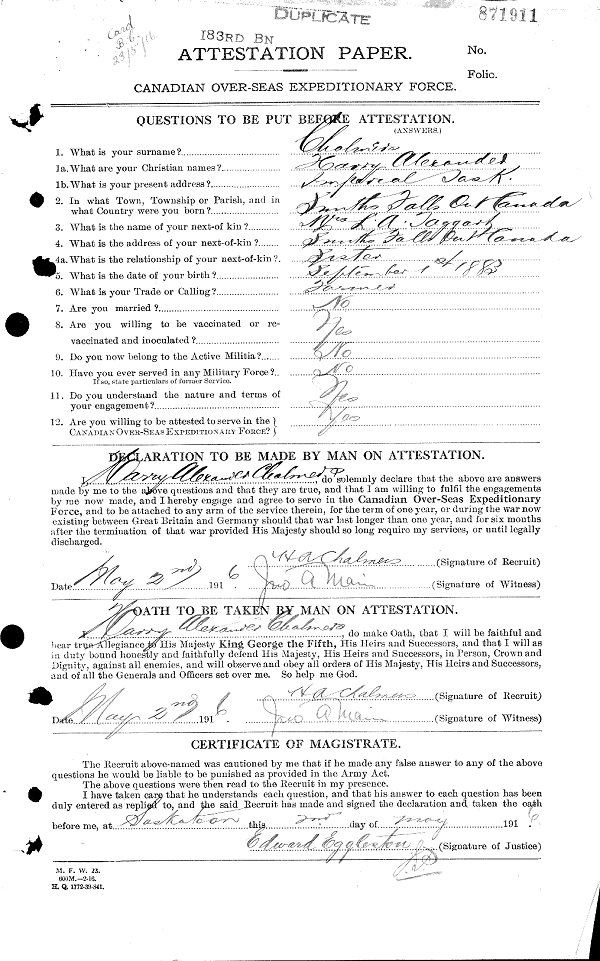 DUPLICATE
871911
Card
183RD BN
ATTESTATION PAPER.
No.
Folio.
CANADIAN OVER-SEAS EXPEDITIONARY FORCE.
QUESTIONS TO BE PUT BEFORE ATTESTATION.
(ANSWERS.)
1. What is your surname? Chalmers
1a. What are your Christian names? Harry Alexander
1b. What is your present address? Imperial Sask.
2. In what Town, Township or Parish, and in
what Country were you born? Smiths Falls Ont Canada
3. What is the name of your next-of kin? Mrs L. A. Taggart
4. What is the address of your next-of-kin? Smiths Falls Ont Canada
4a. What is the relationship of your next-of-kin? Sister
5. What is the date of your birth? September 1st 1883
6. What is your Trade or Calling? Farmer
7. Are you married? No
8. Are you willing to be vaccinated or re-
vaccinated and inoculated? Yes
9. Do you now belong to the Active Militia? No
10. Have you ever served in any Military Force? No
If so, state particulars of former Service.
11. Do you understand the nature and terms of
your engagement? Yes
12. Are you willing to be attested to serve in the
CANADIAN OVER-SEAS EXPEDITIONARY FORCE? Yes
DECLARATION TO BE MADE BY MAN ON ATTESTATION.
I, Harry Alexander Chalmers, do solemnly declare that the above are answers
made by me to the above questions and that they are true, and that I am willing to fulfil the engagements
by me now made, and I hereby engage and agree to serve in the Canadian Over-Seas Expeditionary
Force, and to be attached to any arm of the service therein, for the term of one year, or during the war now
existing between Great Britain and Germany should that war last longer than one year, and for six months
after the termination of that war provided His Majesty should so long require my services, or until legally
discharged.
H A Chalmers (Signature of Recruit)
Date May 2nd 1916 Jno A Main (Signature of Witness)
OATH TO BE TAKEN BY MAN ON ATTESTATION.
I, Harry Alexander Chalmers, do make Oath, that I will be faithful and
bear true Allegiance to His Majesty King George the Fifth, His Heirs and Successors, and that I will as
in duty bound honestly and faithfully defend His Majesty, His Heirs and Successors, in Person, Crown and
Dignity, against all enemies, and will observe and obey all orders of His Majesty, His Heirs and Successors,
and of all the Generals and Officers set over me. So help me God.
H A Chalmers (Signature of Recruit)
Date May 2nd 1916 Jno A Main (Signature of Witness)
CERTIFICATE OF MAGISTRATE.
The Recruit above-named was cautioned by me that if he made any false answer to any of the above
questions he would be liable to be punished as provided in the Army Act.
The above questions were then read to the Recruit in my presence.
I have taken care that he understands each question, and that his answer to each question has been
duly entered as replied to, and the said Recruit has made and signed the declaration and taken the oath
before me, at Saskatoon this 2nd day of May 1916
Edward Eggleston (Signature of Justice)
J.P.
M. F. W. 23.
600M.—2-16.
H. Q. 1772-39-841.